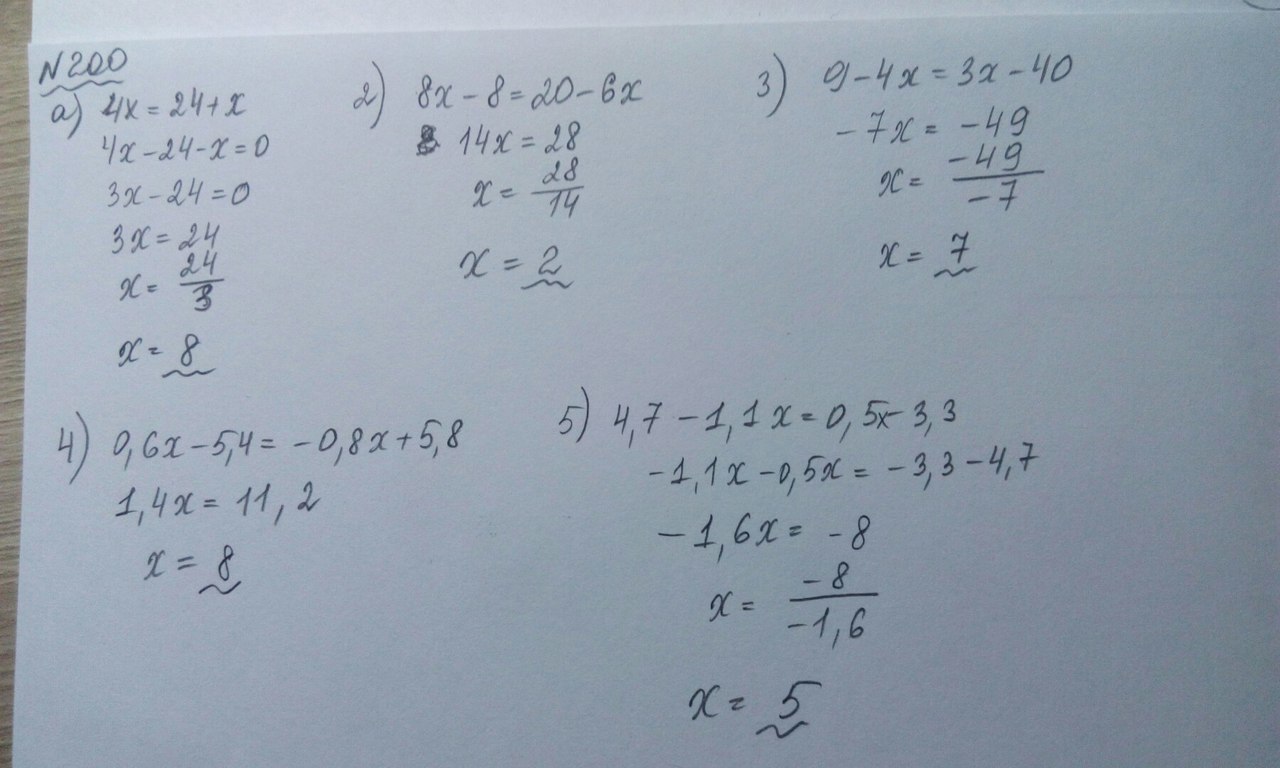 N200
а) 4x = 24 + x
4x - 24 - x = 0
3x - 24 = 0
3x = 24
x = 24/3
x = 8
2) 8x - 8 = 20 - 6x
14x = 28
x = 28/14
x = 2
3) 9 - 4x = 3x - 40
-7x = -49
x = -49/-7
x = 7
4) 0,6x - 5,4 = -0,8x + 5,8
1,4x = 11,2
x = 8
5) 4,7 - 1,1x = 0,5x - 3,3
-1,1x - 0,5x = -3,3 - 4,7
-1,6x = -8
x = -8/-1,6
x = 5